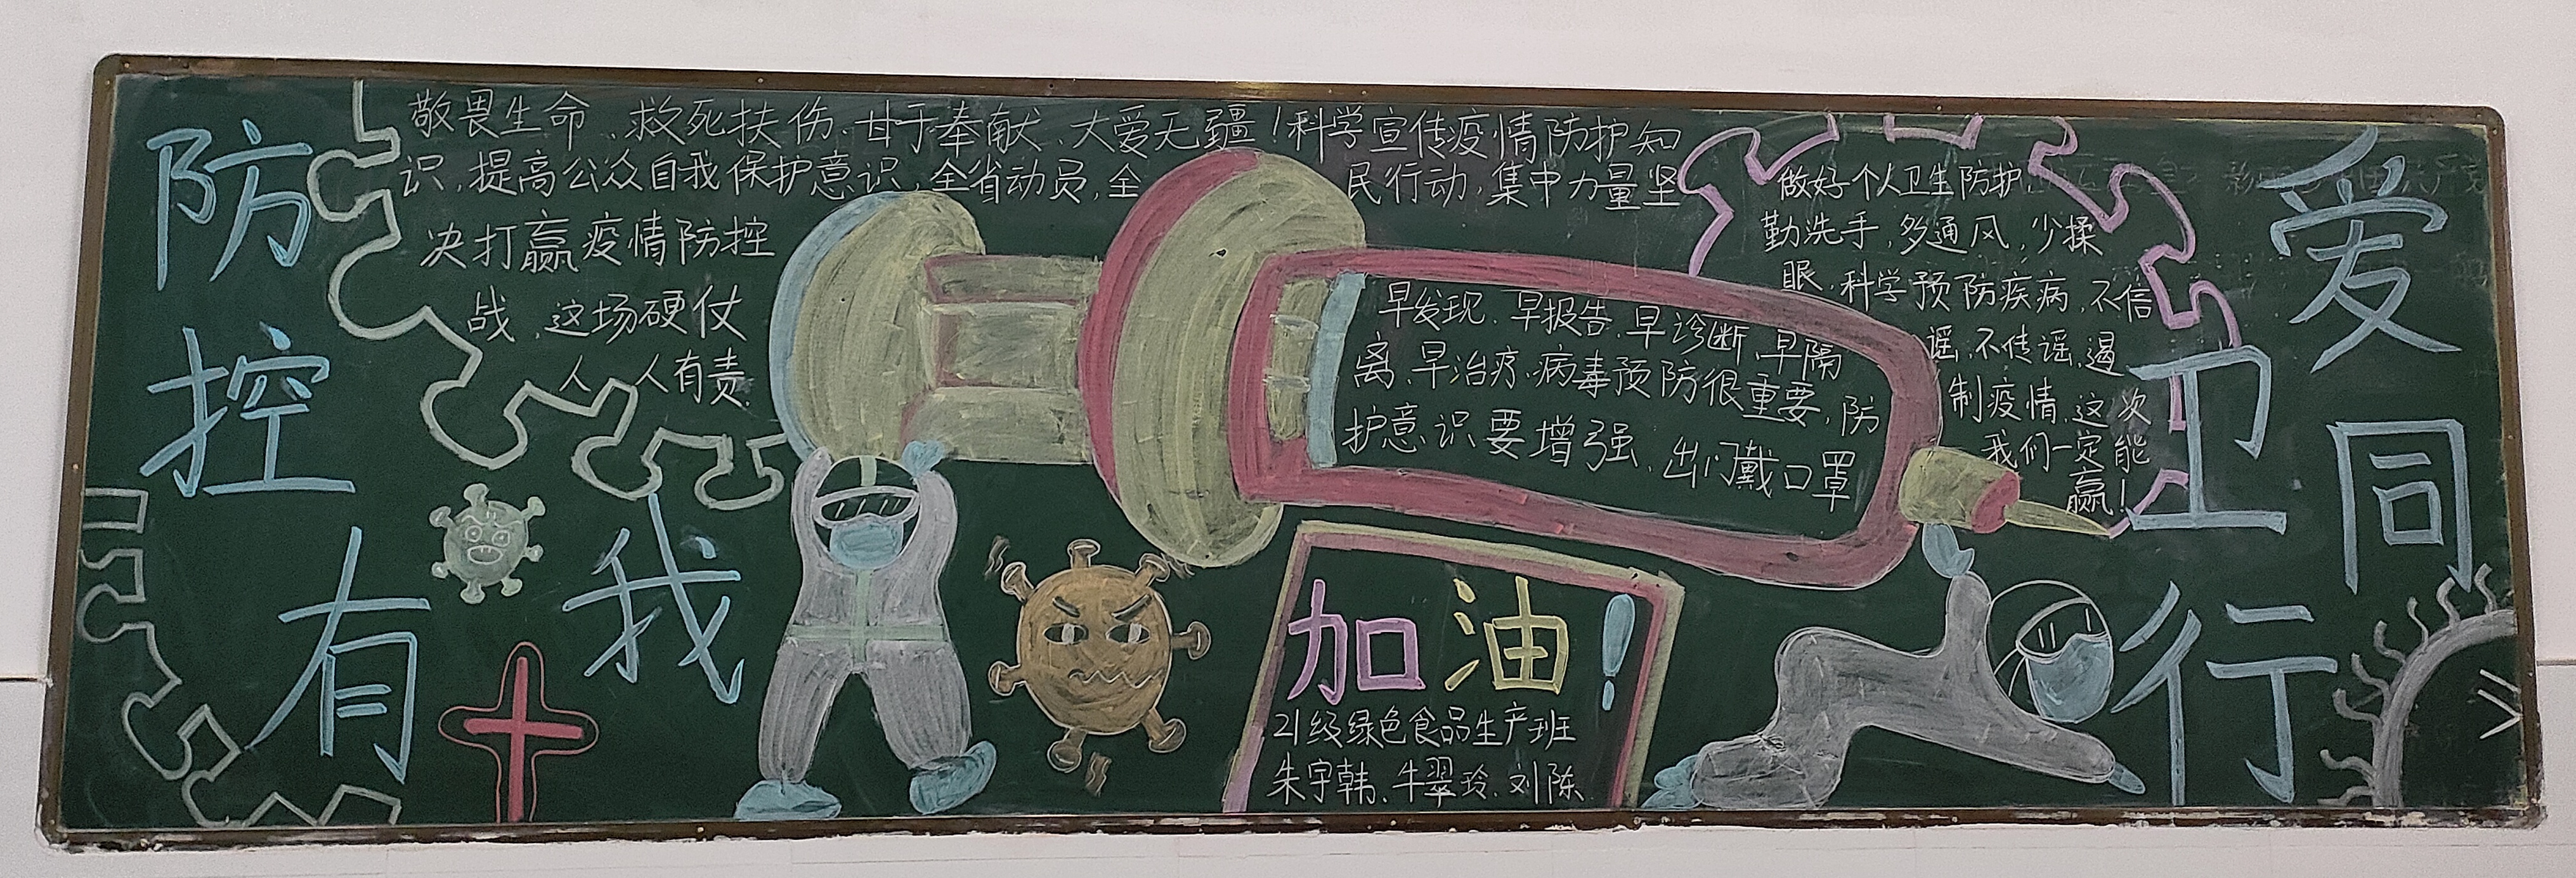 防控有我
敬畏生命、救死扶伤、甘于奉献、大爱无疆！科学宣传疫情防护知
识，提高公众自我保护意识，全省动员，全民行动，集中力量坚
决打赢疫情防控
战，这场硬仗
人人有责.
早发现、早报告、早诊断、早隔
离、早治疗、病毒预防很重要，防
护意识要增强、出门戴口罩
做好个人卫生防护，
勤洗手，多通风，少揉
眼，科学预防疾病，不信
谣，不传谣，遏
制疫情，这次
我们一定能
赢！
加油！
21级绿色食品生产班
朱宇韩、牛翠玲、刘陈
爱同
卫行